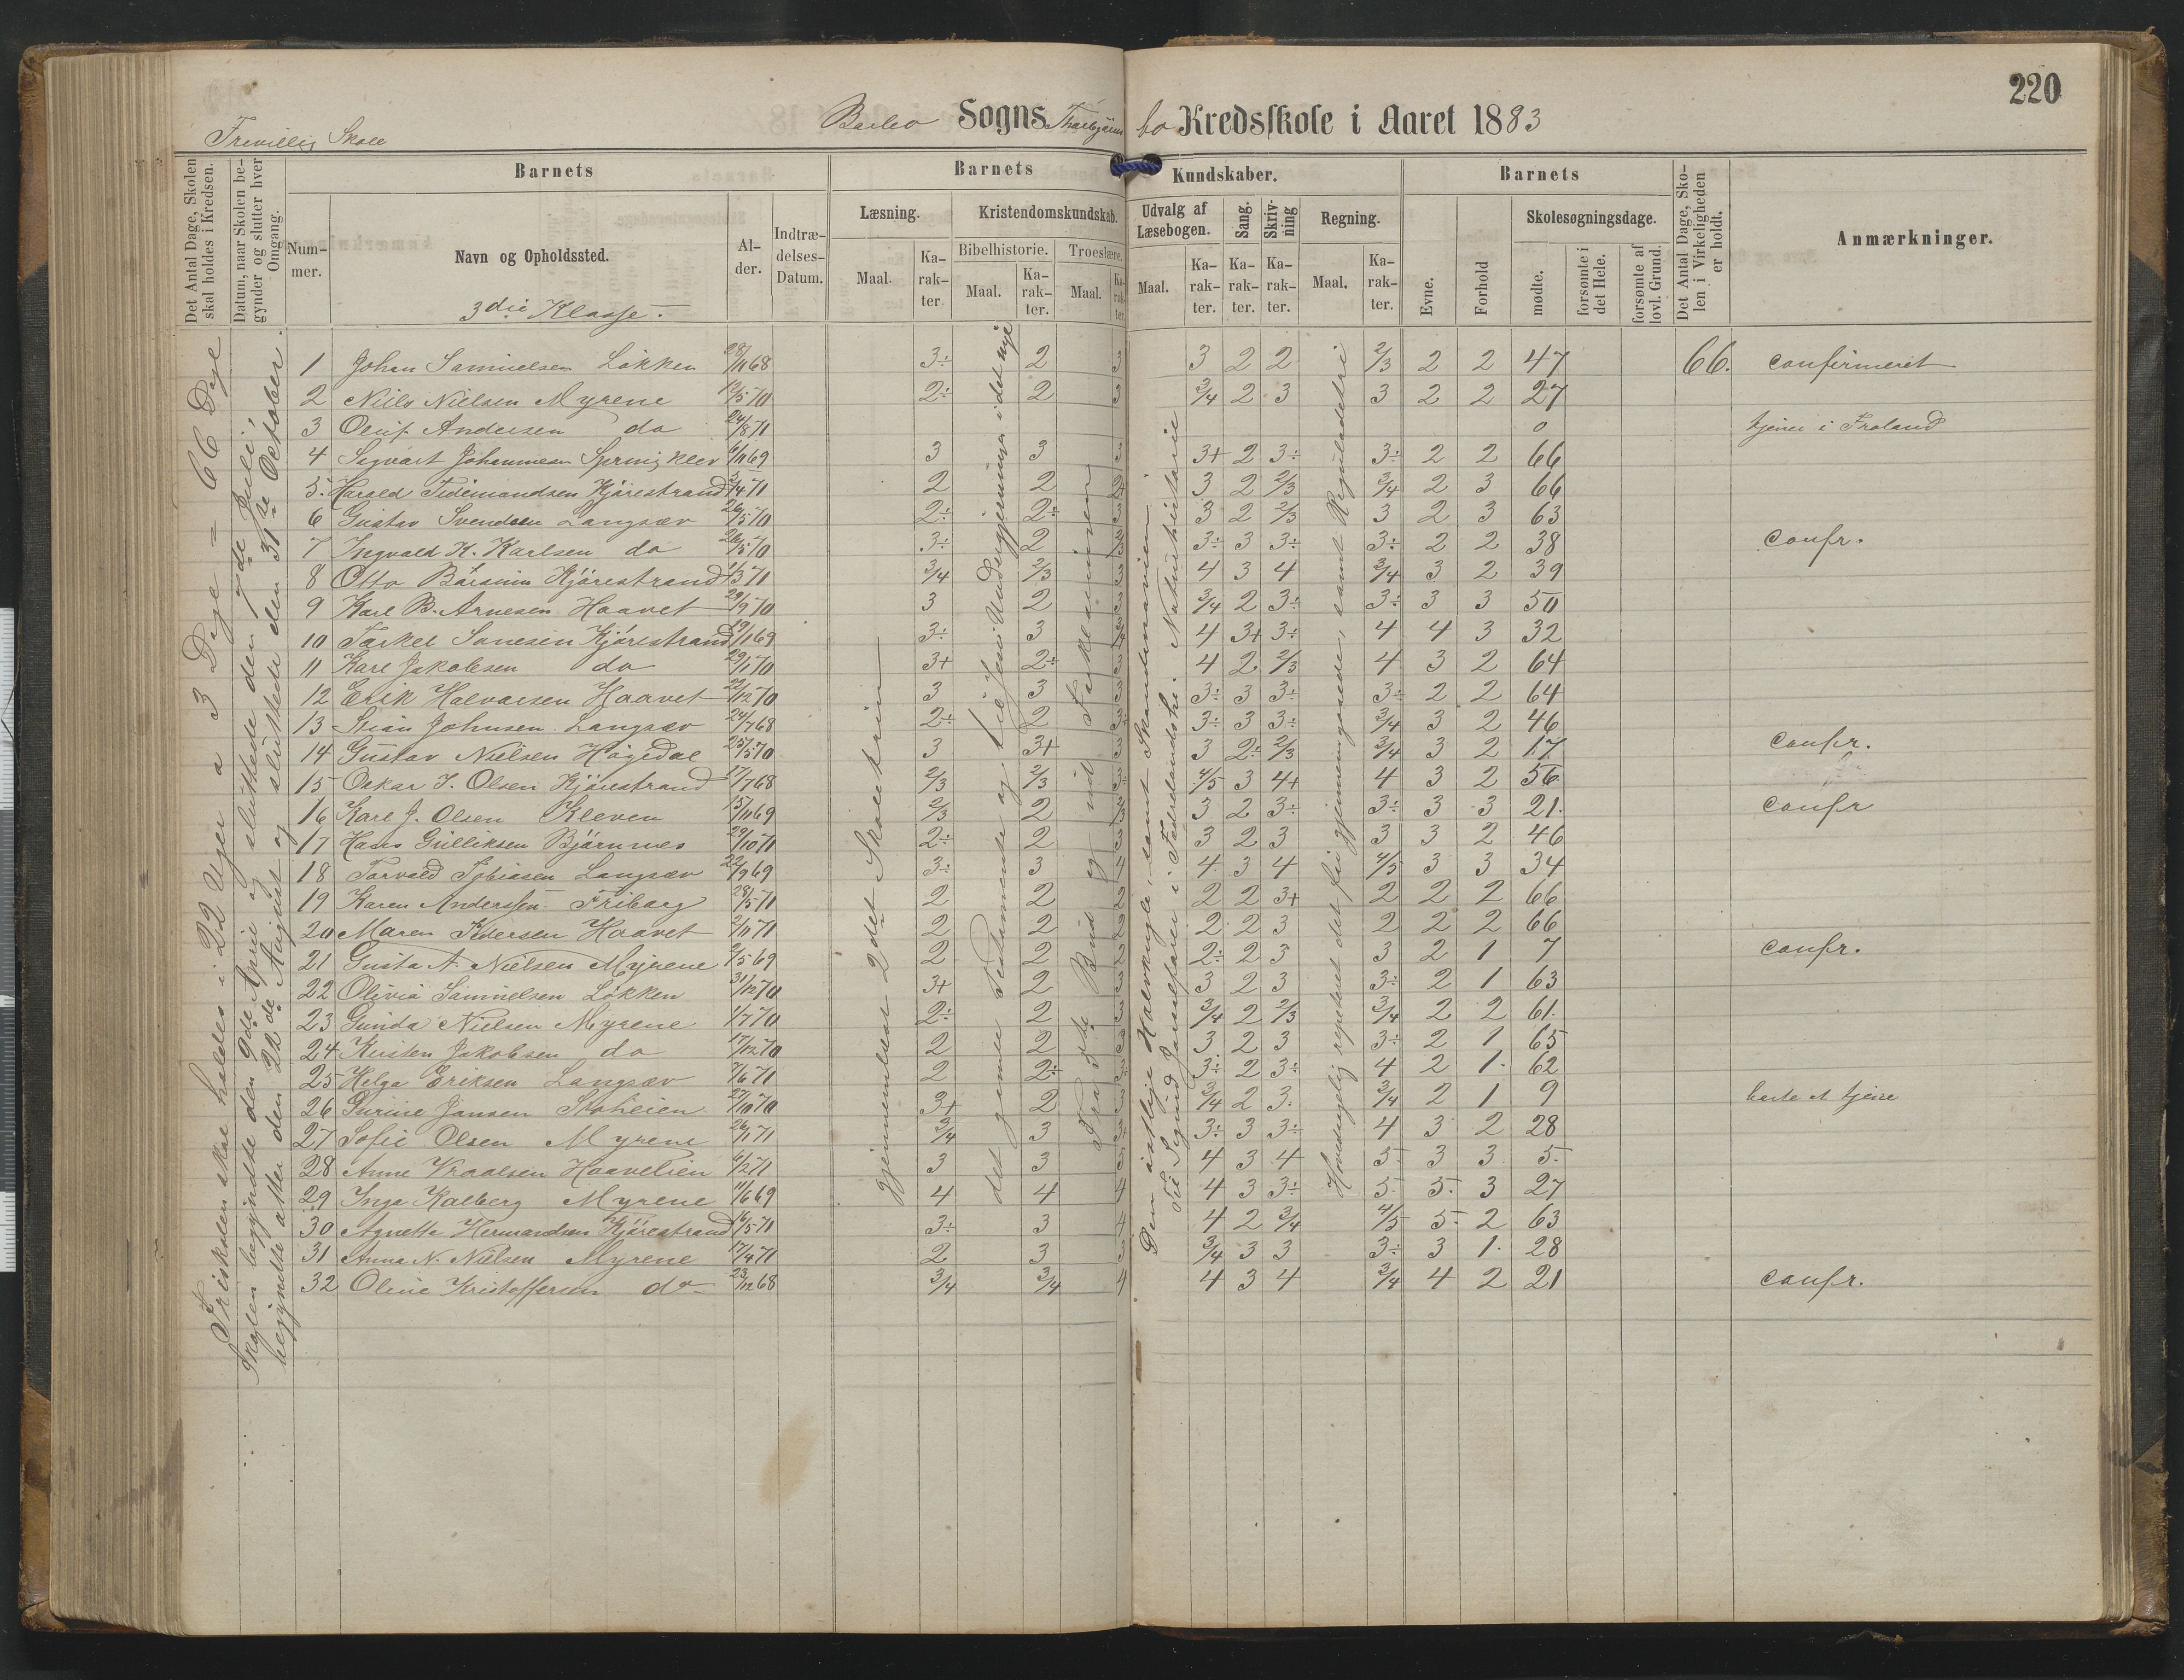 220
Frivillig Skole
Barbo Sogns Thorbjörns bo Kredsskole i Aaret 1883
Det Antal Dage, Skolen skal holdes i Kredsen.
Datum, naar Skolen begynder og slutter hver Omgang.
Barnets
Nummer.
Navn og Opholdssted.
3die Klasse.
Alder.
Indtrædelses-Datum.
Barnets Kundskaber.
Læsning.
Maal.
Karakter.
Kristendomskundskab.
Bibelhistorie.
Maal.
Karakter.
Troeslære.
Maal.
Karakter.
Udvalg af Læsebogen.
Maal.
Karakter.
Sang.
Karakter.
Skrivning
Karakter.
Regning.
Maal.
Karakter.
Barnets
Evne.
Forhold
Skolesøgningsdage.
mødte.
forsømte i det Hele.
forsømte af lovl. Grund.
Det Antal Dage, Skolen i Virkeligheden er holdt.
Anmærkninger.
Friskolen skal holdes i 22 Uger a 3 Dage = 66 Dage
Skolen begyndte den 9de April og sluttede den 7de Juli,
begyndte atter den 22de August og sluttede den 31te October.
Gjennemlæst 2det Skoletrin
det gamle Testamente og til Jesu Undergjerninger i det nye
Fra 3die Bud og ud Forklaringen
Den østlige Halvkugle, samt Skandinavien.
til Sigurd Jorsalfarer i Fædrelandshi. Naturhistorie
Hovedsagelig repeteret det før gjennemgaaede, samt Reguladetri
1 Johan Samuelsen Løkken 28/11 68 3÷ 2 3 3 2 2 2/3 2 2 47 66. confirmeret
2 Niels Nielsen Myrene 12/5 70 2÷ 2 3 3/4 2 3 3 2 2 27
3 Oluf Andersen do 24/8 71 0 tjener i Froland
4 Sigvart Johannesen Springklev 6/11 69 3 3 3 3+ 2 3÷ 3÷ 2 2 66
5. Harald Tidemandsen Kjørrestrand 2/4 71 2 2 3 2 2/3 3/4 2 3 66
6 Gustav Svendsen Langsæv 26/5 70 2÷ 2÷ 3 3 2 2/3 3 2 3 63
7 Ingvald K. Karlsen do 26/5 70 3÷ 2 3÷ 3 3÷ 3÷ 2 2 38 confr.
8 Otto Börsum Kjørrestrand 1/3 71 3/4 2/3 3 4 3 4 3/4 3 2 39
9 Karl B. Arnesen Haavet 29/9 70 3 2 3 3/4 2 3÷ 3÷ 3 3 50
10 Torkel Sonesen Kjørrestrand 19/1 69 3÷ 3 4 3+ 3÷ 4 4 3 32
11 Karl Jakobsen do 29/1 70 3+ 2÷ 3 4 2 2/3 4 3 2 64
12 Erik Halvorsen Haavet 22/12 70 3 3 3 3÷ 3 3÷ 3÷ 2 2 64
13 Stian Johnsen Langsæv 24/7 68 2÷ 2 3÷ 3÷ 3 3÷ 3/4 3 2 46
14 Gustav Nielsen Høgedal 25/5 70 3 3+ 3 3 2÷ 2/3 3/4 3 2 17 confr.
15 Oskar J. Olsen Kjørrestrand 17/7 68 2/3 2/3 3÷ 4/5 3 4+ 4 3 2 56
16 Karl J. Olsen Kleven 15/11 69 2/3 2 3 2 3÷ 3÷ 3 3 21. confr
17 Hans Gulliksen Bjørnnes 29/10 71 2÷ 2 3 3 2 3 3 3 2 46
18 Torvald Tobiasen Langsæv 22/9 69 3÷ 3 4 4 3 4 4/5 3 3 34
19 Karen Anderssen Friborg 28/5 71 2 2 2 2 2 3+ 2 2 2 66
20 Maren Pedersen Haavet 2/11 71 2 2 2 2 2 3 2 2 2 66
21 Gusta A. Nielsen Myrene 2/5 69 2 2 2 2÷ 2 3 3 2 1 7 confr.
22 Olivia Samuelsen Løkken 31/12 70 3+ 2 3 3 2 3 3÷ 2 1 63
23 Gunda Nielsen Myrene 1/7 70 2÷ 2 3 3/4 2 2/3 3/4 2 2 61.
24 Kirsten Jakobsen do 17/12 70 2 2 3 3 2 3 3÷ 2 1 65
25 Helga Eriksen Langsæv 7/6 71 2 2÷ 3÷ 3÷ 2 3÷ 4 2 1. 62
26 Gurine Jansen Stoheien 27/10 70 3+ 2 3 3/4 2 3. 3/4 2 1 9 borte at tjene
27 Sofie Olsen Myrene 26/1 71 3/4 3 3 3÷ 3 3÷ 4 3 2 28
28 Anne Vraalsen Haavelien 6/12 71 3 3 3 4 3 4 5. 3 3 5.
29 Inga Kalberg Myrene 11/6 69 4 4 4 4 3 3÷ 5. 5. 3 27
30 Agnette Hermandsen Kjørrestrand 16/5 71 3÷ 3 4 4 2 3/4 4/5 5. 2 63
31 Anna N. Nielsen Myrene 17/4 71 2 3 3 3/4 3 3 3÷ 3 1. 28
32 Oline Kristoffersen do 23/12 68 3/4 3/4 4 4 3 4 3/4 4 2 21 confr.